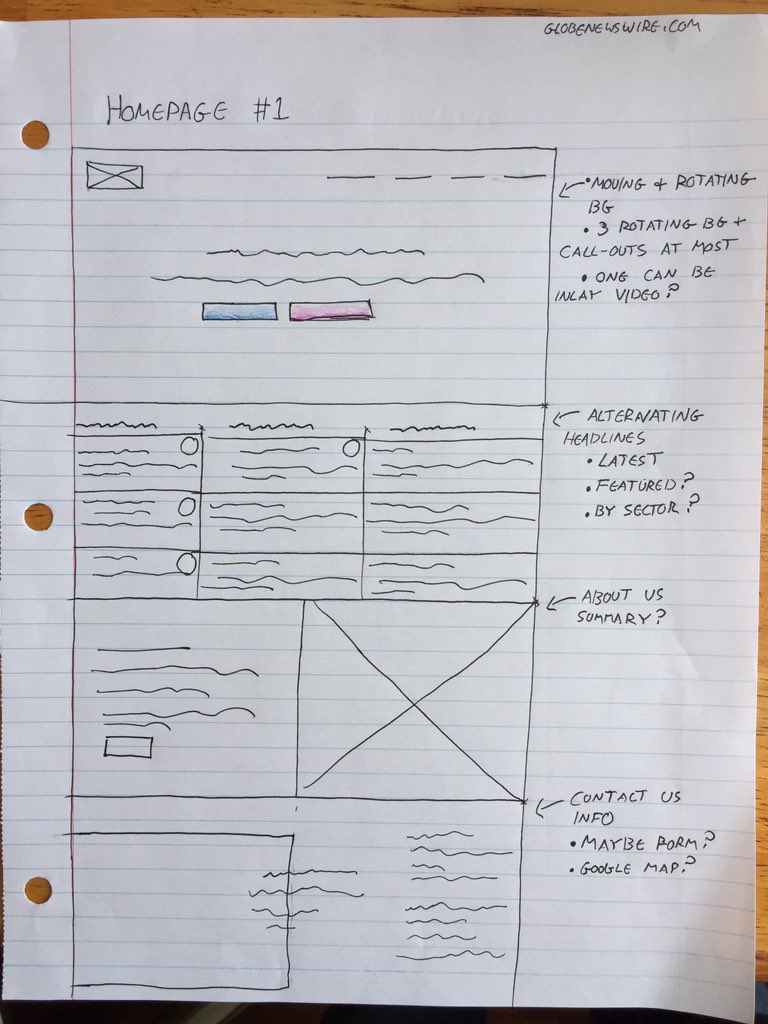 GLOBENEWSWIRE.COM
HOMEPAGE #1
• MOVING + ROTATING
BG
• 3 ROTATING BG +
CALL-OUTS AT MOST
• ONE CAN BE
INLAY VIDEO?
ALTERNATING
HEADLINES
• LATEST
• FEATURED?
• BY SECTOR?
ABOUT US
SUMMARY?
CONTACT US
INFO
• MAYBE FORM?
• GOOGLE MAP?